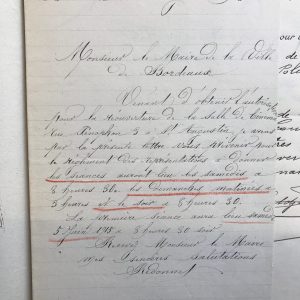 Monsieur le Maire de la Ville
de Bordeaux
Venant d'obtenir l'autori
pour la réouverture de la Salle de Cinéma
rue 5 à St Augustin, je vous
par la présente lettre vous prévenir pour
le règlement des représentations à donner
les séances auront lieu les samedis à
8 heures 30. les Dimanches matinées à
3 heures et le soir à 8 heures 30.
La première séance aura lieu samedi
5 Juin 1915 à 8 heures 30 soir.
Recevez Monsieur le Maire
mes sincères salutations